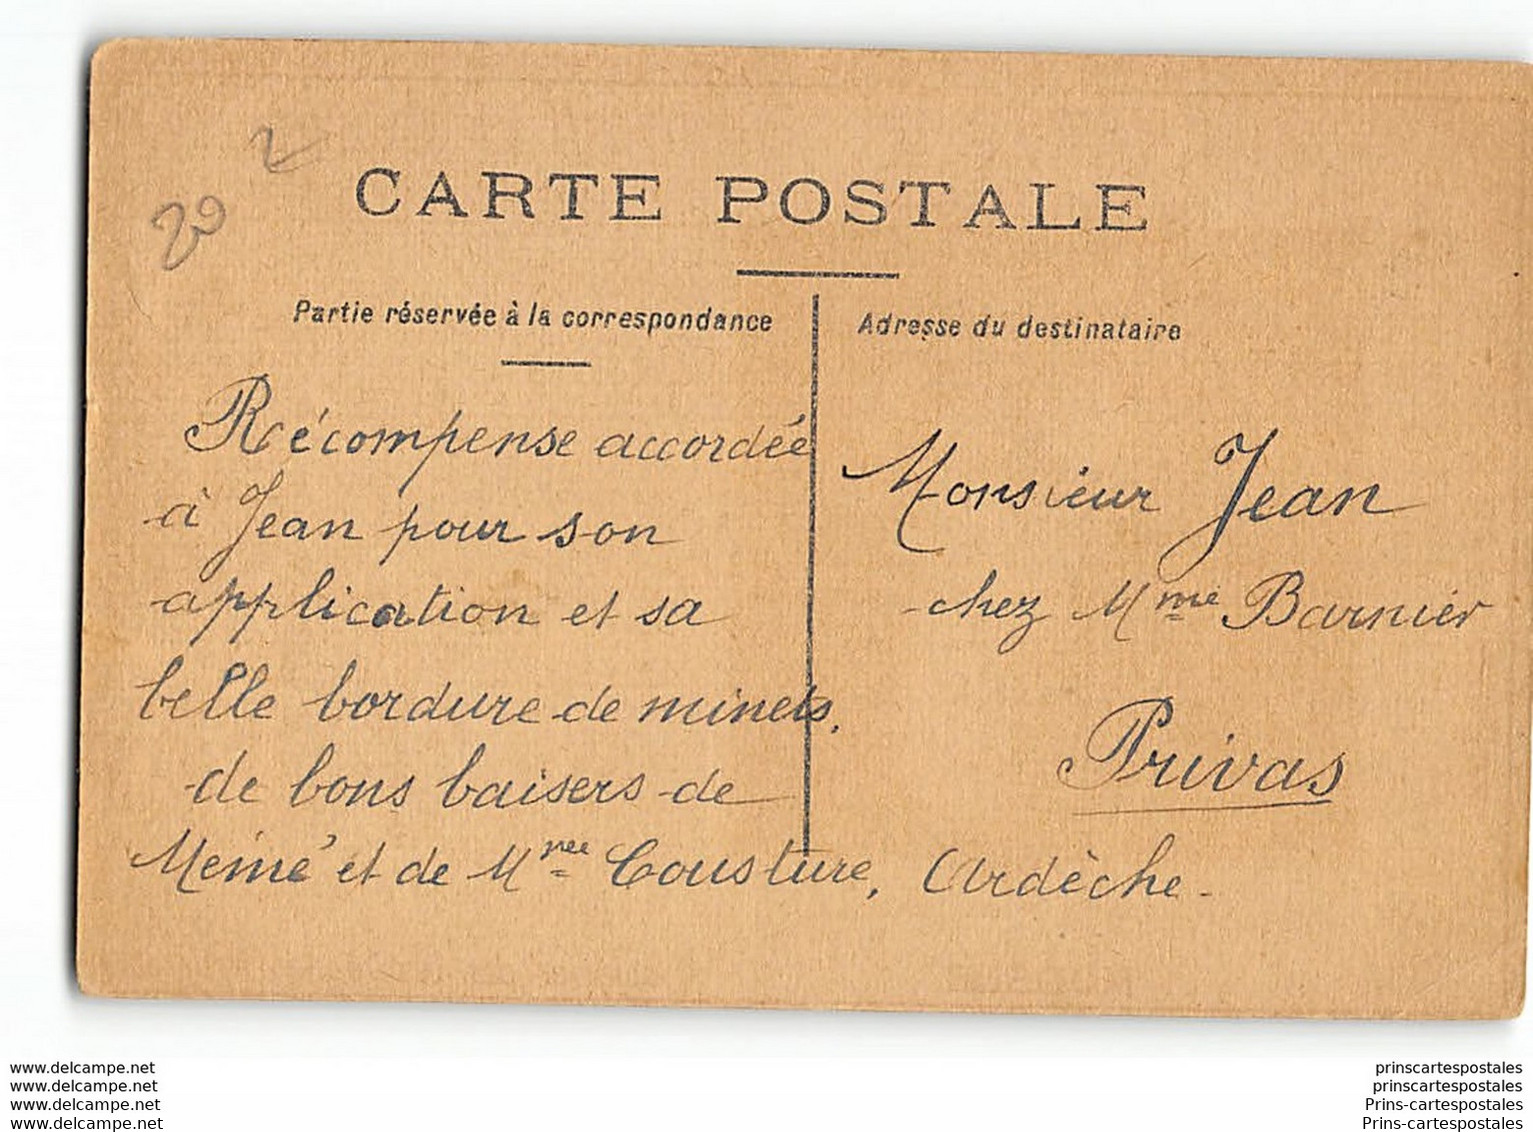 2
20
CARTE POSTALE
Partie réservée à la correspondance
Récompense accordée
à Jean pour son
application et sa
belle bordure de minets.
de bons baisers de
Mémé et de Mme Cousture,
Adresse du destinataire
Monsieur Jean
chez Mme Barnier
Privas
Ardèche.
www.delcampe.net
www.delcampe.net
www.delcampe.net
www.delcampe.net
prinscartespostales
prinscartespostales
Prins-cartespostales
Prins-cartespostales